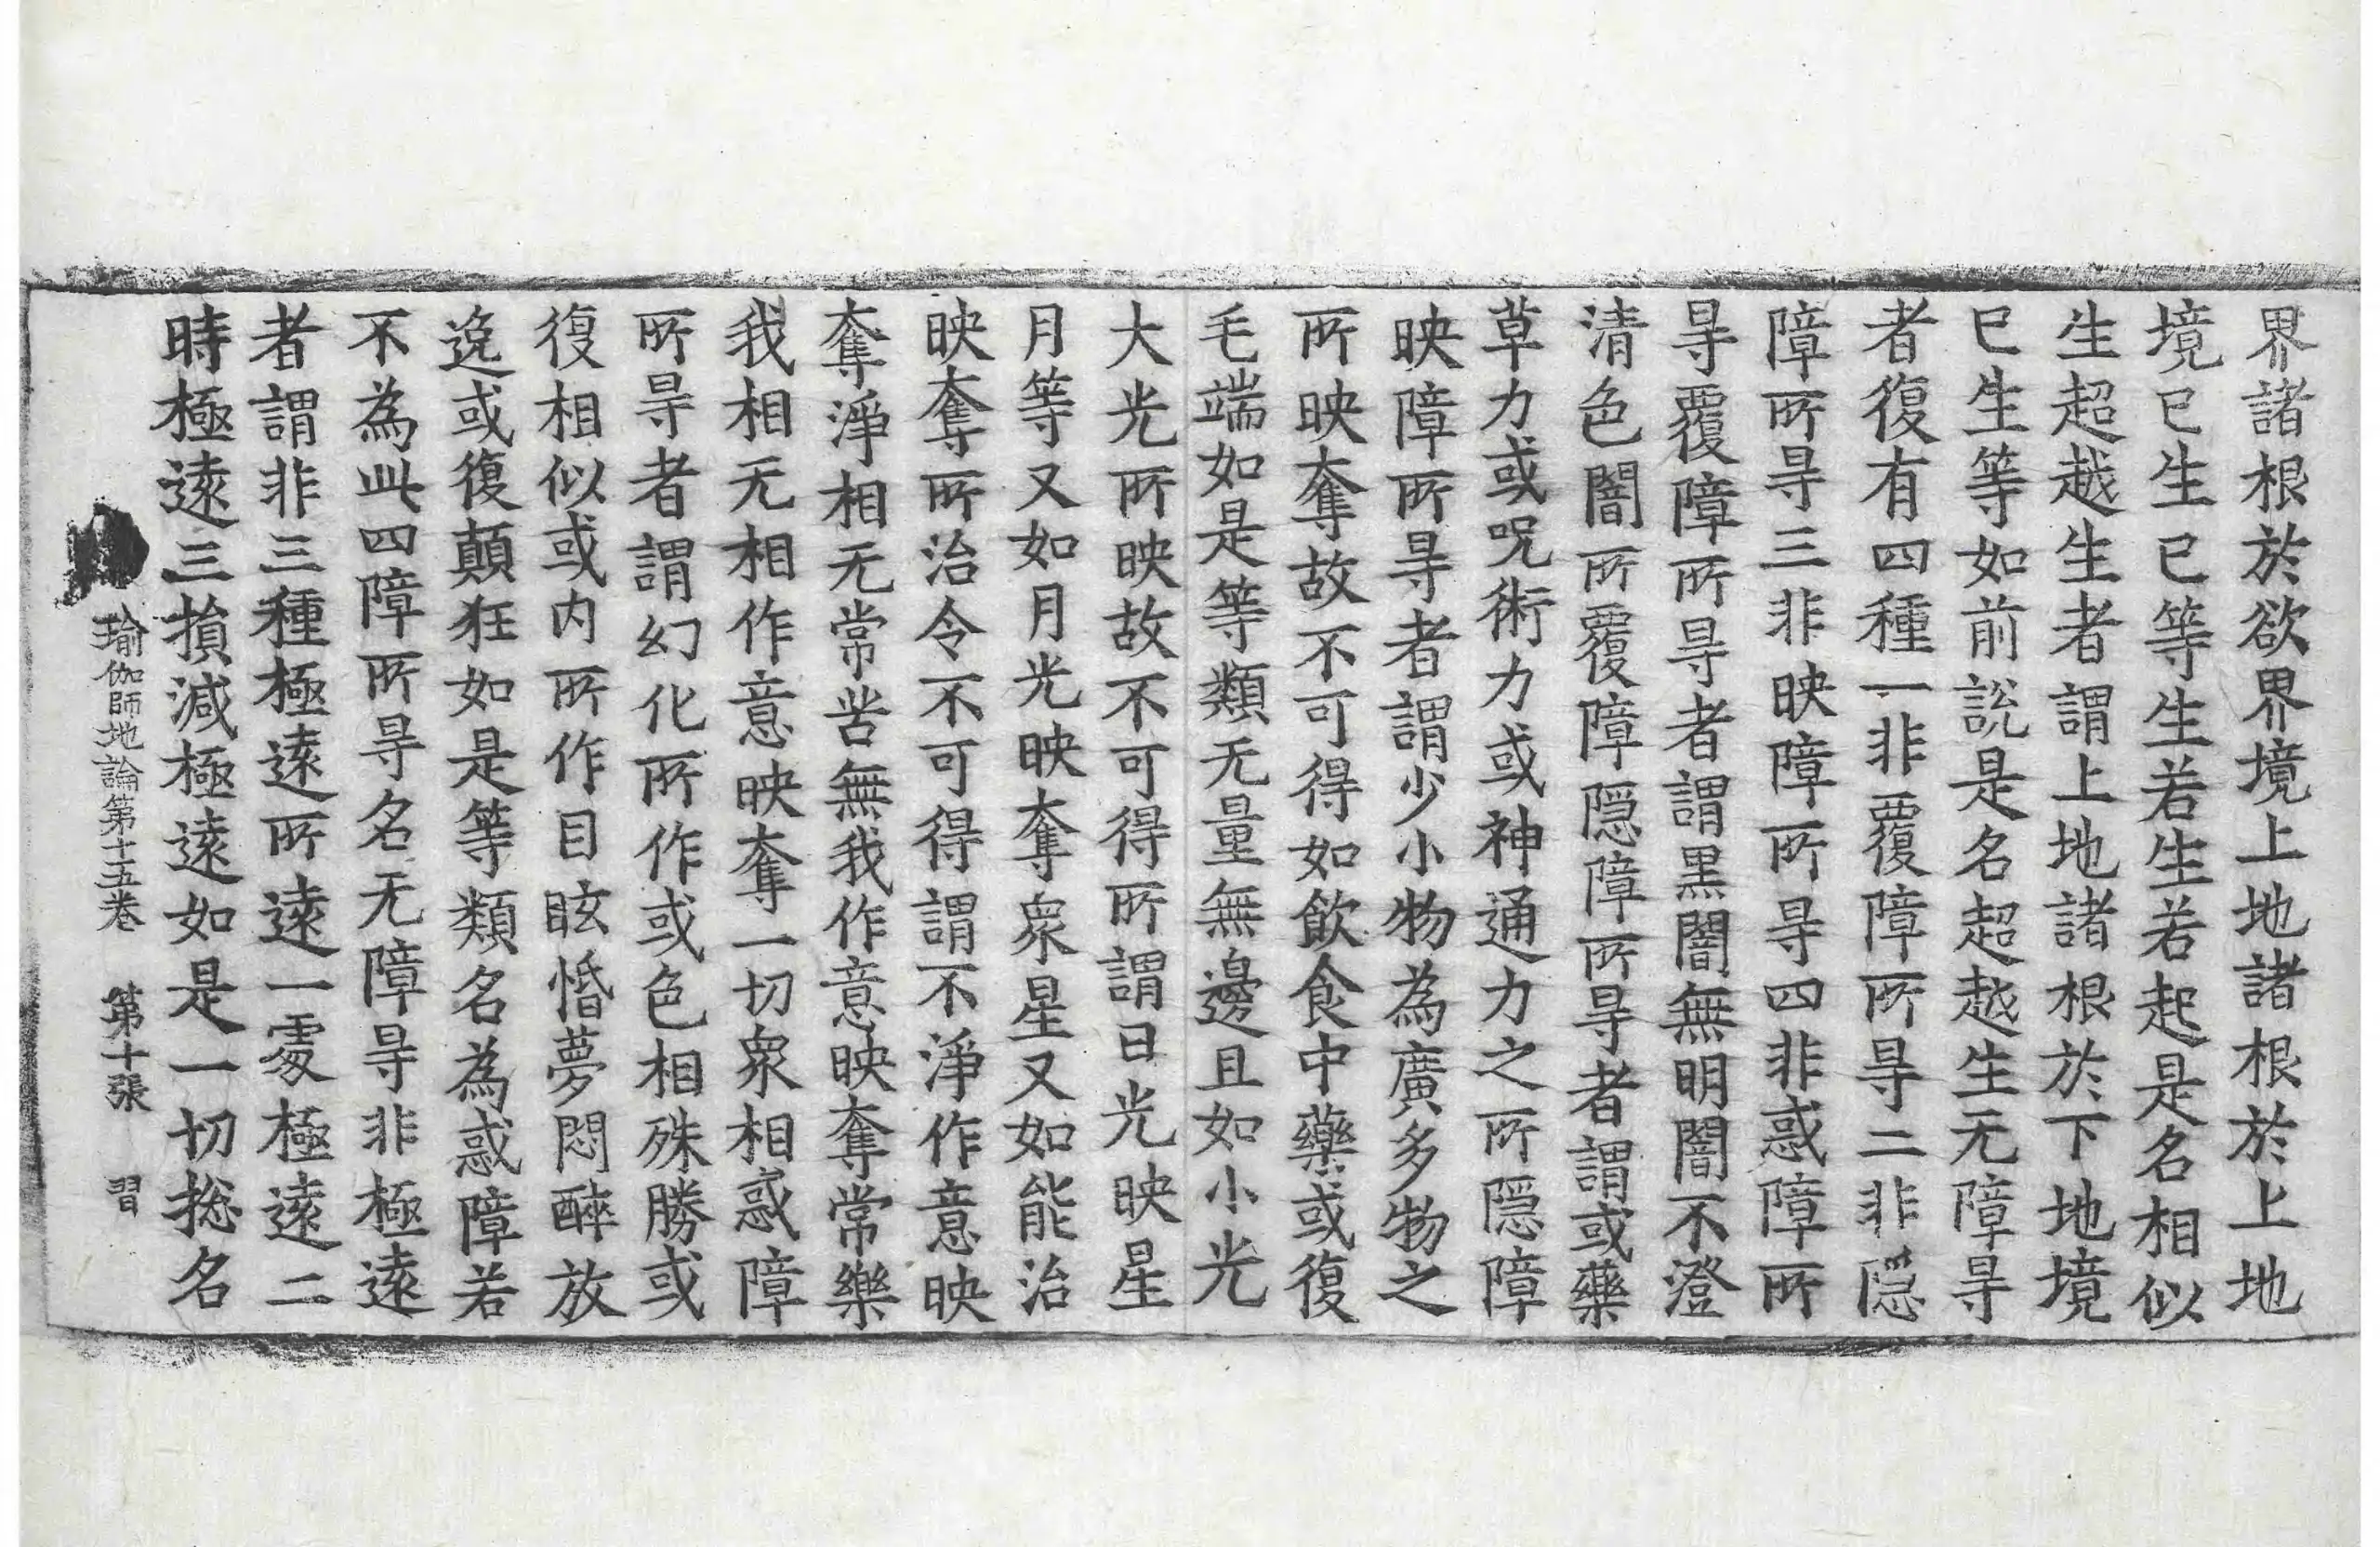 界諸根於欲界境上地諸根於上地
境已生已等生若生若起是名相似
生超越生者謂上地諸根於下地境
已生等如前說是名超越生无障㝵
者復有四種一非覆障所㝵二非隱
障所㝵三非映障所㝵四非惑障所
㝵覆障所㝵者謂黑闇無明闇不澄
清色闇所覆障隱障所㝵者謂或藥
草力或呪術力或神通力之所隱障
映障所㝵者謂少小物為廣多物之
所映奪故不可得如飲食中藥或復
毛端如是等類无量無邊且如小光
大光所映故不可得所謂日光映星
月等又如月光映奪衆星又如能治
映奪所治令不可得謂不淨作意映
奪淨相无常苦無我作意映奪常樂
我相无相作意映奪一切衆相惑障
所㝵者謂幻化所作或色相殊勝或
復相似或内所作目眩惛夢悶醉放
逸或復顛狂如是等類名為惑障若
不為此四障所㝵名无障㝵非極遠
者謂非三種極遠所遠一處極遠二
時極遠三損減極遠如是一切捴名
瑜伽師地論第十五卷 第十張 習